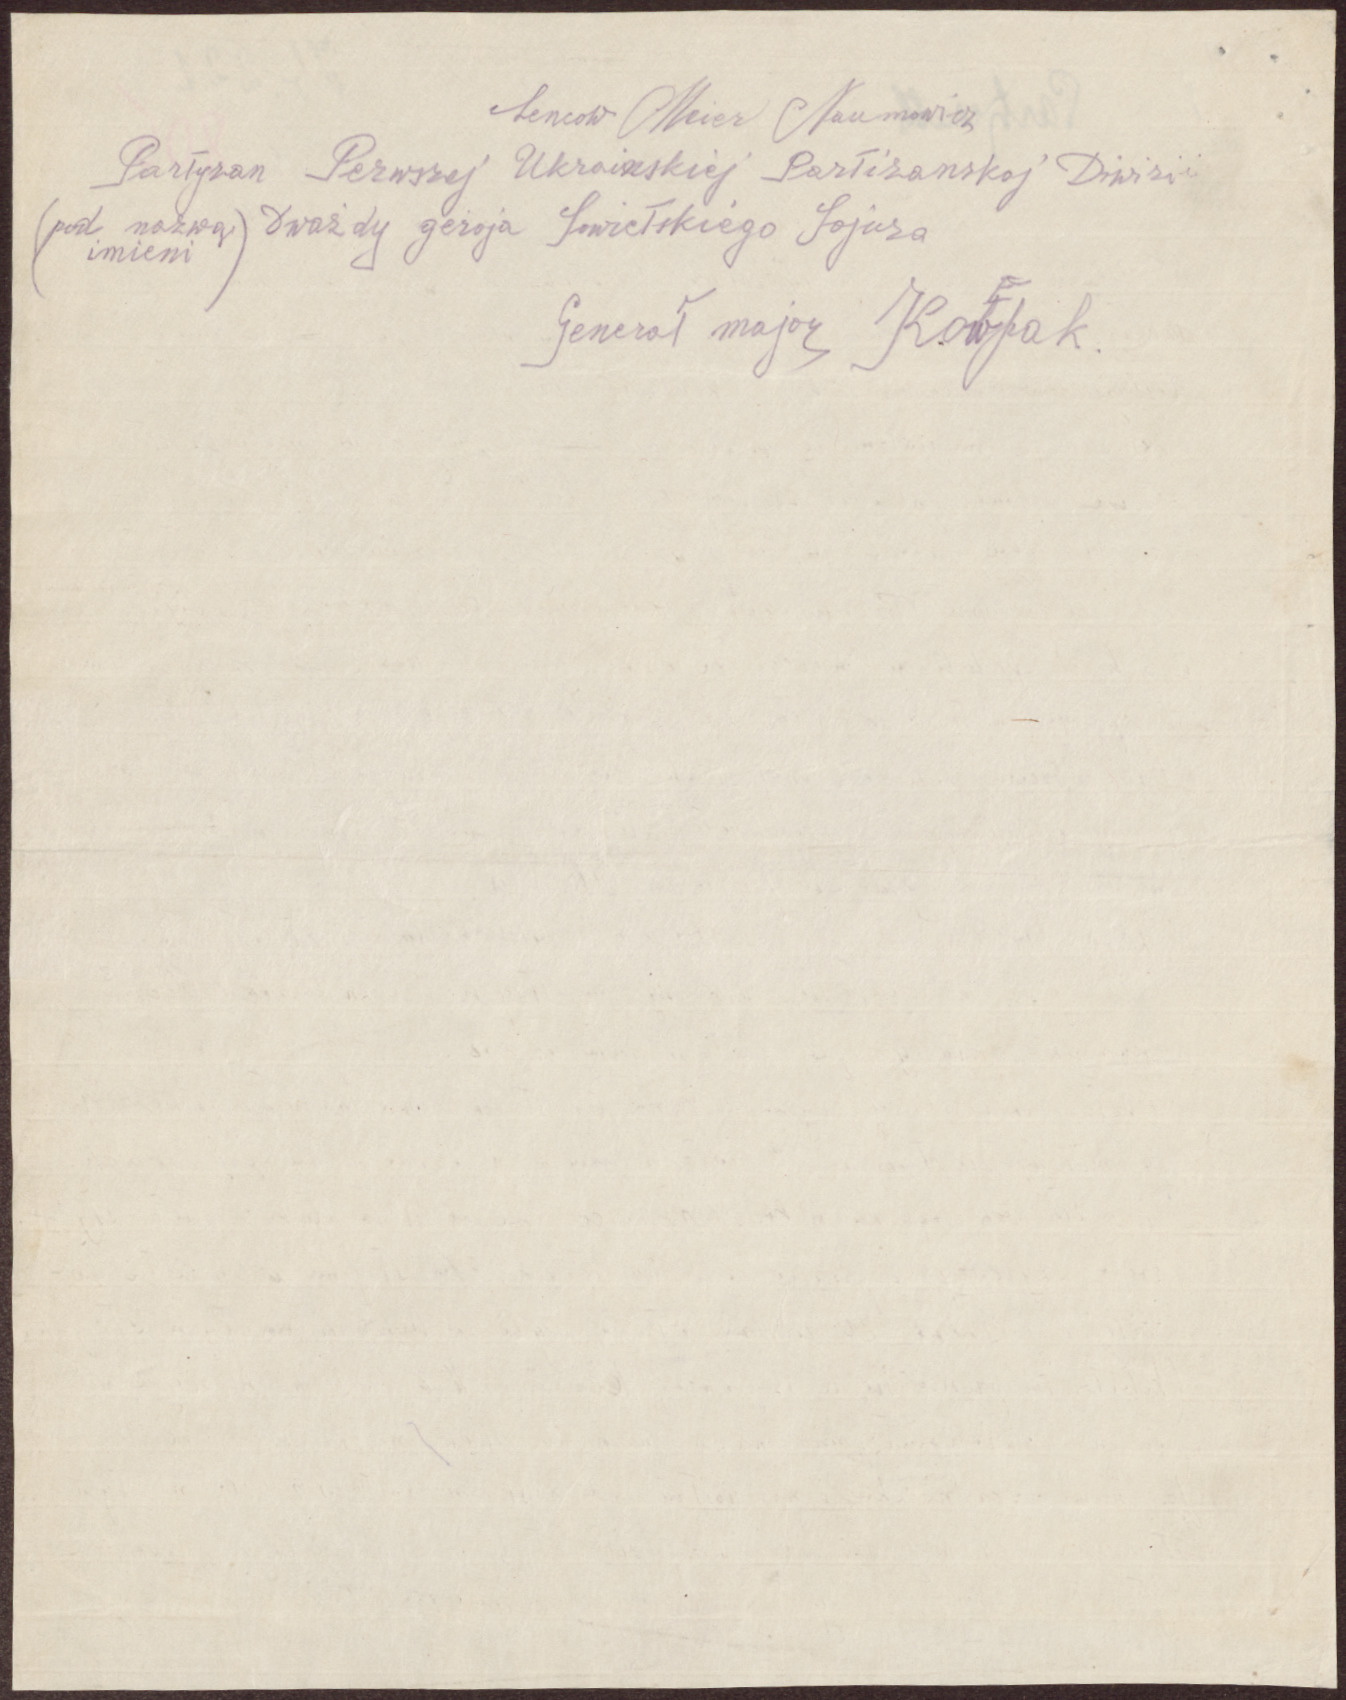 Sencow Meier Naumowicz
Partyzan Perwszej Ukrainskiej Partizanskoj Diwizii
(pod nazwą) Dważdy geroja Sowietskiego Sojuza
imieni
Generał major Kowpak.